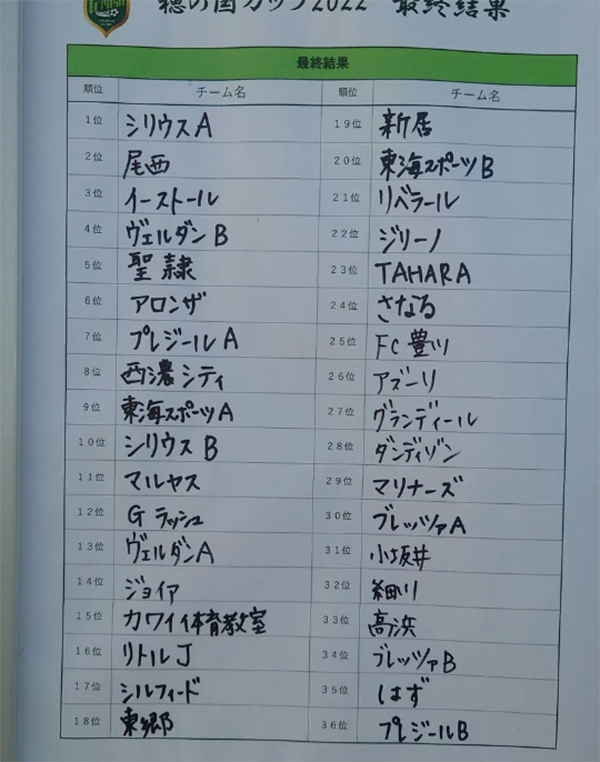 穂の国カップ2022 最終結果
最終結果
順位 チーム名 順位 チーム名
1位 シリウスA 19位 新居
2位 尾西 20位 東海スポーツB
3位 イーストール 21位 リベラール
4位 ヴェルダンB 22位 ジリーノ
5位 聖隷 23位 TAHARA
6位 アロンザ 24位 さなる
7位 プレジールA 25位 FC豊川
8位 西濃シティ 26位 アズーリ
9位 東海スポーツA 27位 グランディール
10位 シリウスB 28位 ダンディゾン
11位 マルヤス 29位 マリナーズ
12位 Gラッシュ 30位 ブレッツァA
13位 ヴェルダンA 31位 小坂井
14位 ジョイア 32位 細川
15位 カワイ体育教室 33位 高浜
16位 リトルJ 34位 ブレッツァB
17位 シルフィード 35位 はず
18位 東郷 36位 プレジールB